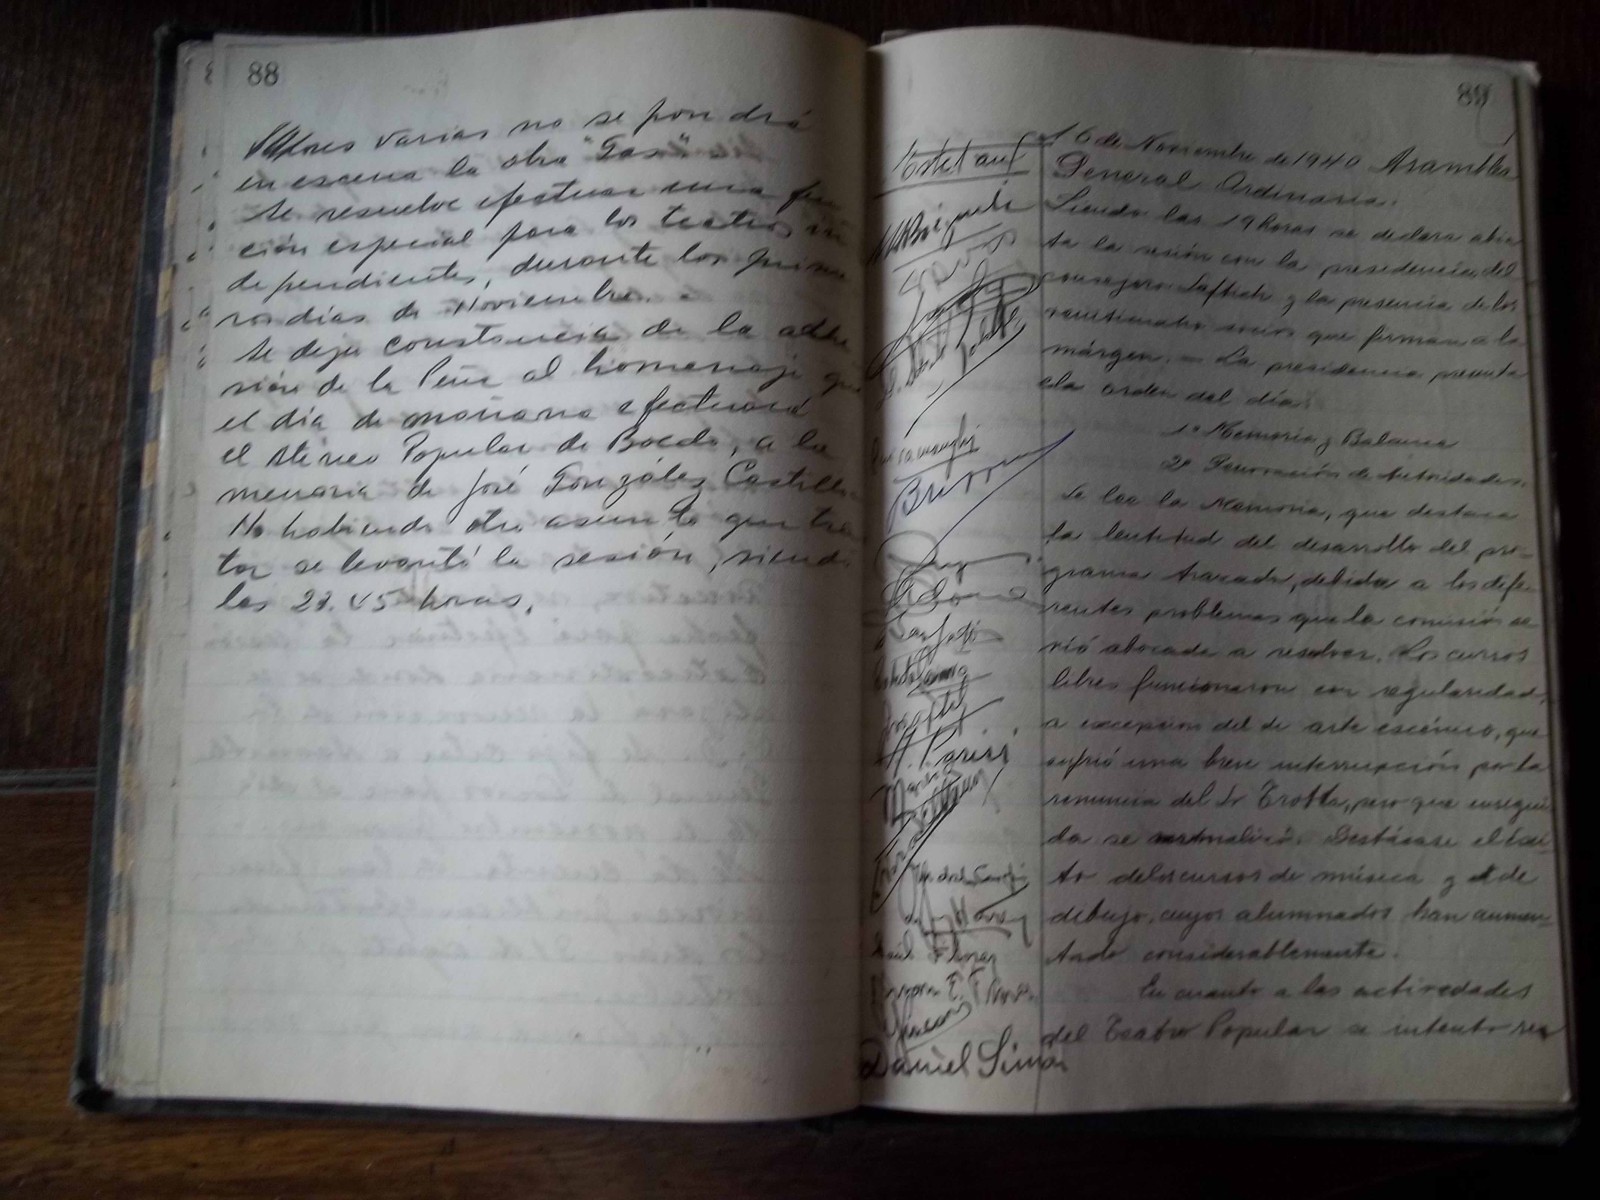 88
varias no se pondrá
en escena la obra "Gas"
Se resuelve efectuar una fun
ción especial para los teatros in
dependientes, durante los prime
ros días de Noviembre. -
Se deja constancia de la adhe
sión de la Peña al homenaje que
el día de mañana efectuará
el Ateneo Popular de Boedo, a la
memoria de José González Castillo
No habiendo otro asunto que tra
tar se levantó la sesión, siendo
las 23.45 horas.
89
16 de Noviembre de 1940 Asamblea
General Ordinaria.
Siendo las 19 horas se declara abier
ta la sesión con la presidencia del
consejero y la presencia de los
socios que firman a la
márgen. — La presidencia presenta
la orden del día:
1º Memoria y Balance
2º Renovación de Autoridades.
Se lee la Memoria, que destaca
la lentitud del desarrollo del pro-
grama trazado, debido a los dife-
rentes problemas que la comisión se
vió abocada a resolver. Los cursos
libres funcionaron con regularidad,
a excepción del de arte escénico, que
sufrió una breve interrupción por la
renuncia del Sr Trotta, pero que enseguí
da se normalizó. Destácase el éxi-
to de los cursos de música y el de
dibujo, cuyos alumnados han aumen-
tado considerablemente.
En cuanto a las actividades
del Teatro Popular se intentó rea
A. Parisi
Daniel Simón